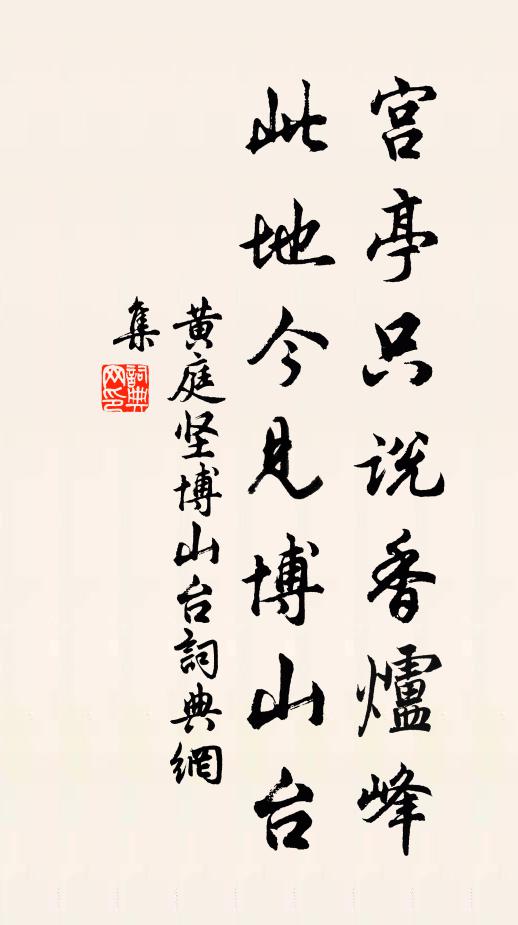 宫亭只说香爐峰
此地今見博山台
黄庭坚博山台詞典網
集
詞典网印